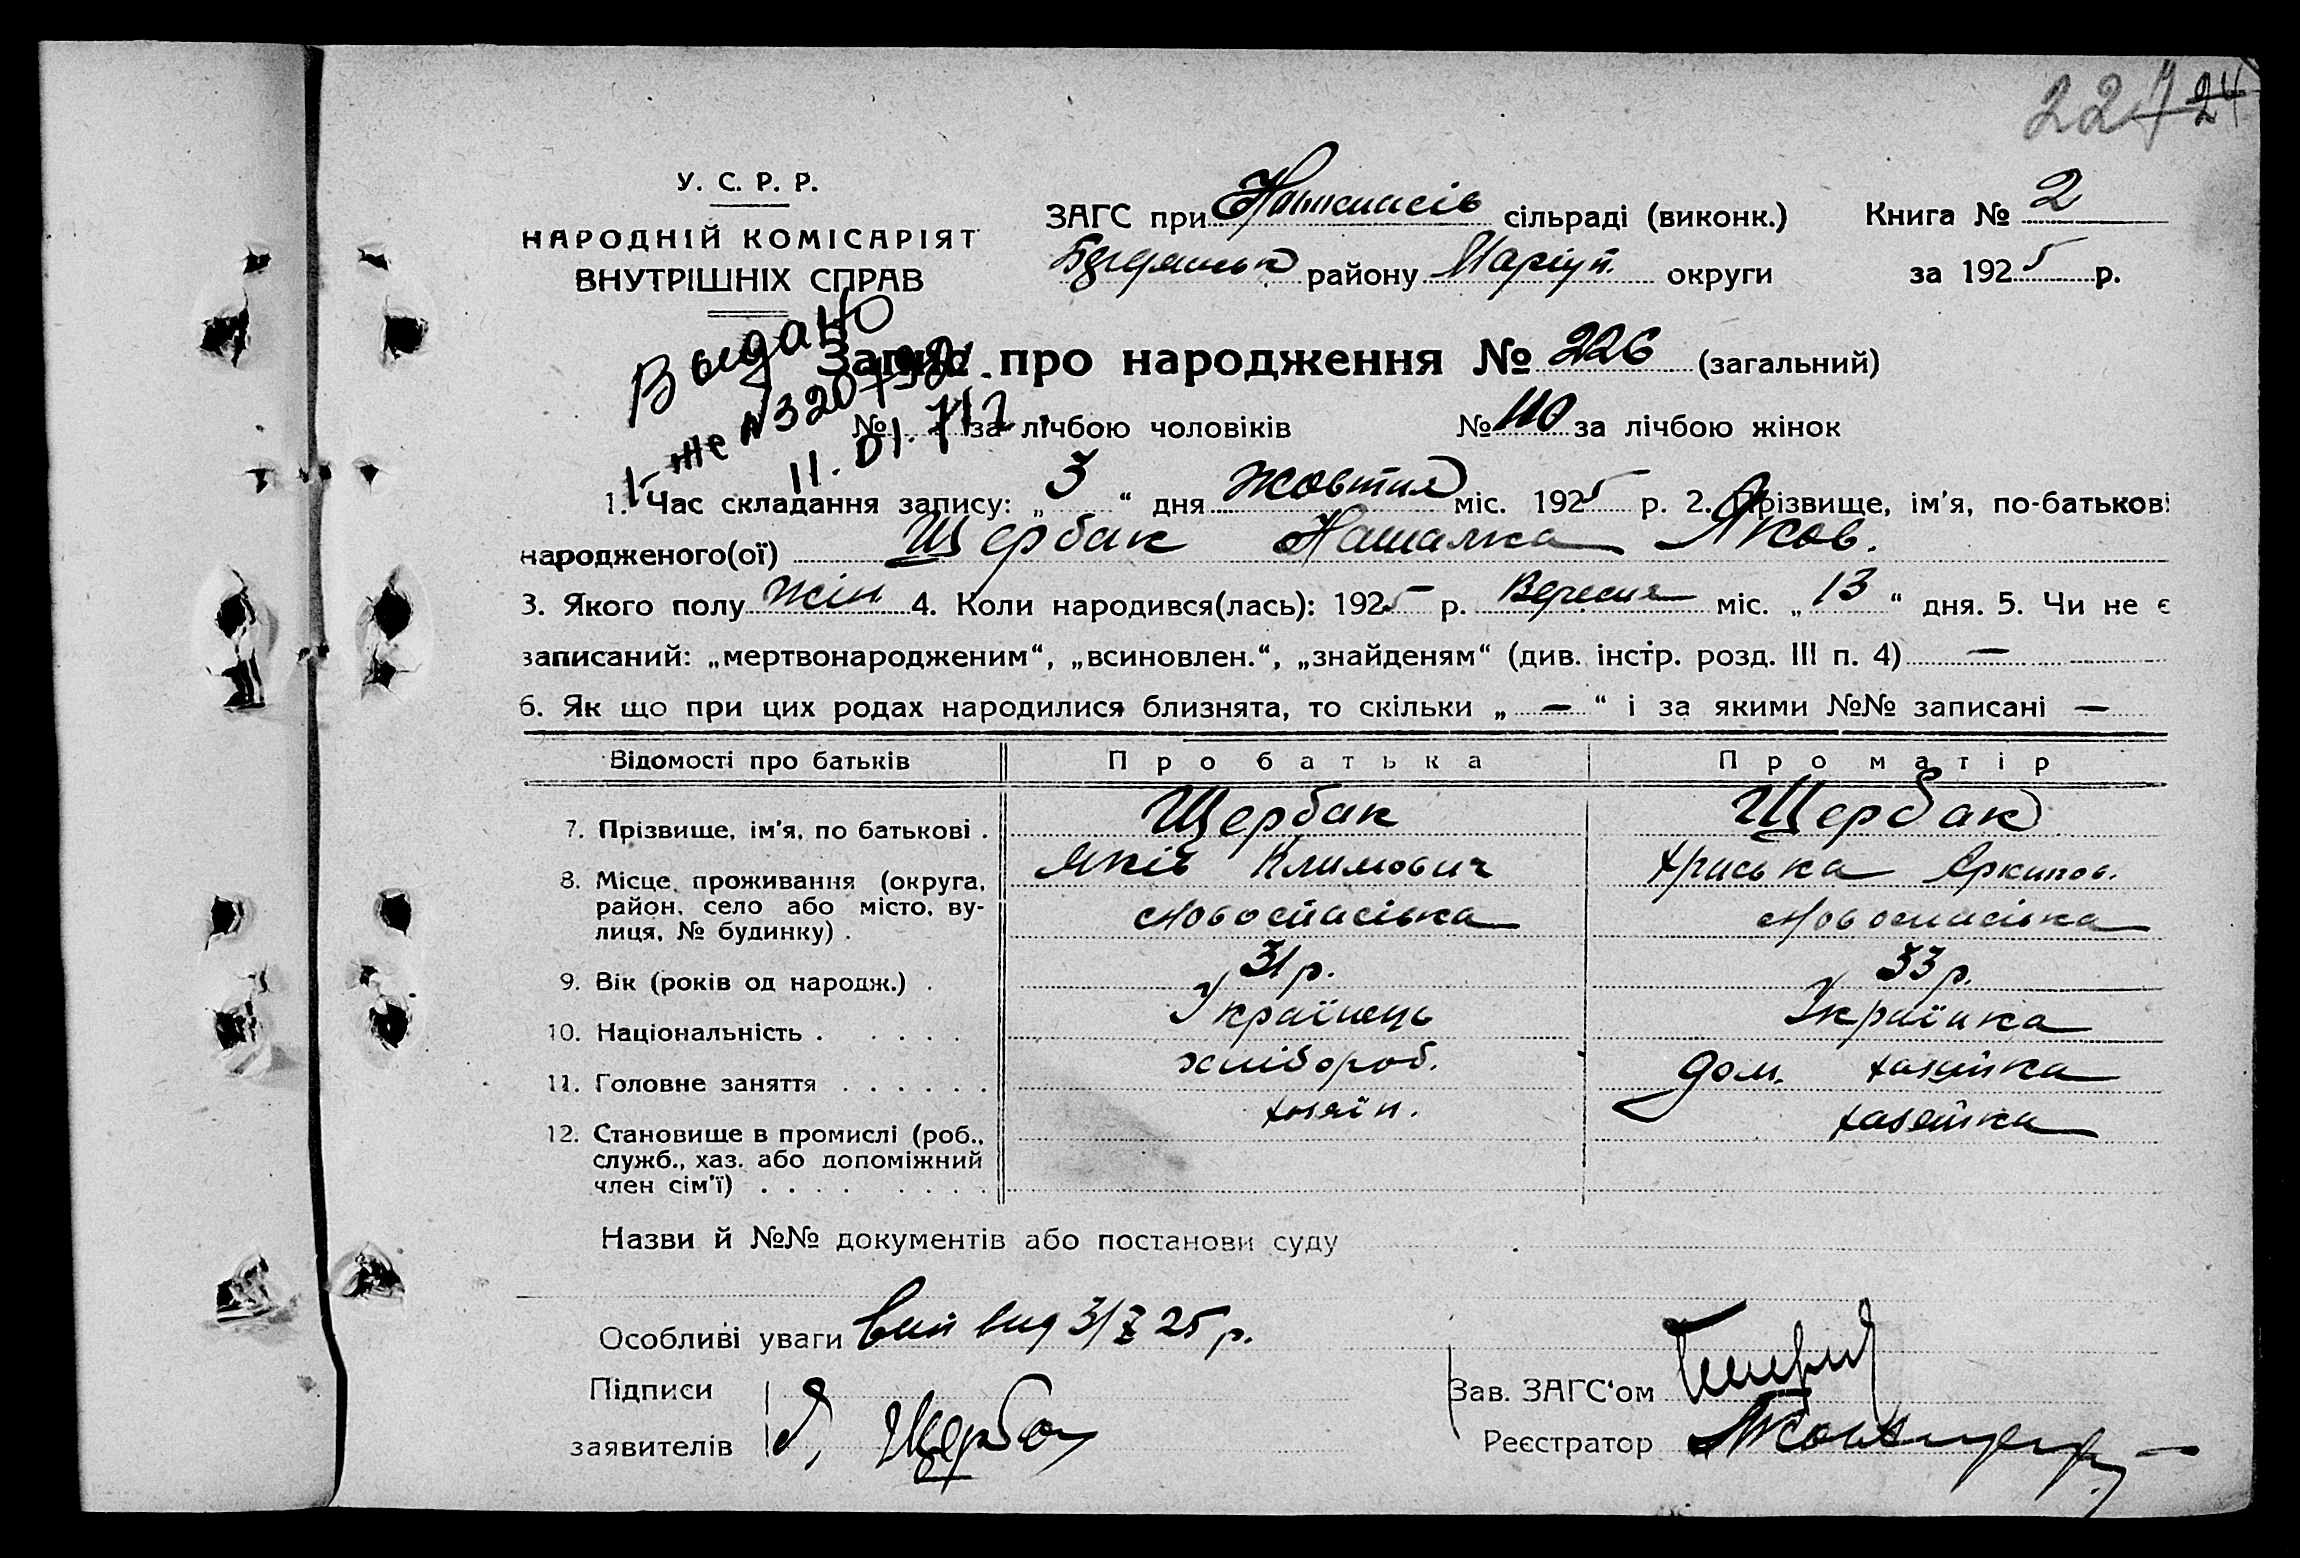 227 24
У. С. Р. Р.
НАРОДНІЙ КОМІСАРІЯТ
ВНУТРІШНІХ СПРАВ
ЗАГС при сільраді (виконк.) Книга № 2
району Маріуп. округи за 1925 р.
Выдано
Запис про народження № 226 (загальний)
№ за лічбою чоловіків № 110 за лічбою жінок
11.01.
1. Час складання запису: „3“ дня жовтня міс. 1925 р. 2. Прізвище, ім'я, по-батькові
народженого(ої) Щербак Наталка Яков.
3. Якого полу жін 4. Коли народився(лась): 1925 р. Вересня міс. „13“ дня. 5. Чи не є
записаний: „мертвонародженим“, „всиновлен.“, „знайденям“ (див. інстр. розд. III п. 4) —
6. Як що при цих родах народилися близнята, то скільки „ — “ і за якими №№ записані —
Відомості про батьків Про батька Про матір
7. Прізвище, ім'я, по батькові . Щербак Щербак
Яків Климович Хриська Архипов.
8. Місце проживання (округа, район, село або місто, вулиця, № будинку) . Новоспасівка Новоспасівка
9. Вік (років од народж.) . 31 р. 33 р.
10. Національність . . . . . Українець Українка
11. Головне заняття . . . . . . хлібороб. дом. хазяйка
12. Становище в промислі (роб., служб., хаз. або допоміжний член сім'ї) . . . . . . . . хазяїн. хазяйка
Назви й №№ документів або постанови суду
Особливі уваги 3/X 25 р.
Підписи Зав. ЗАГС'ом
заявителів Я. Щербак Реєстратор